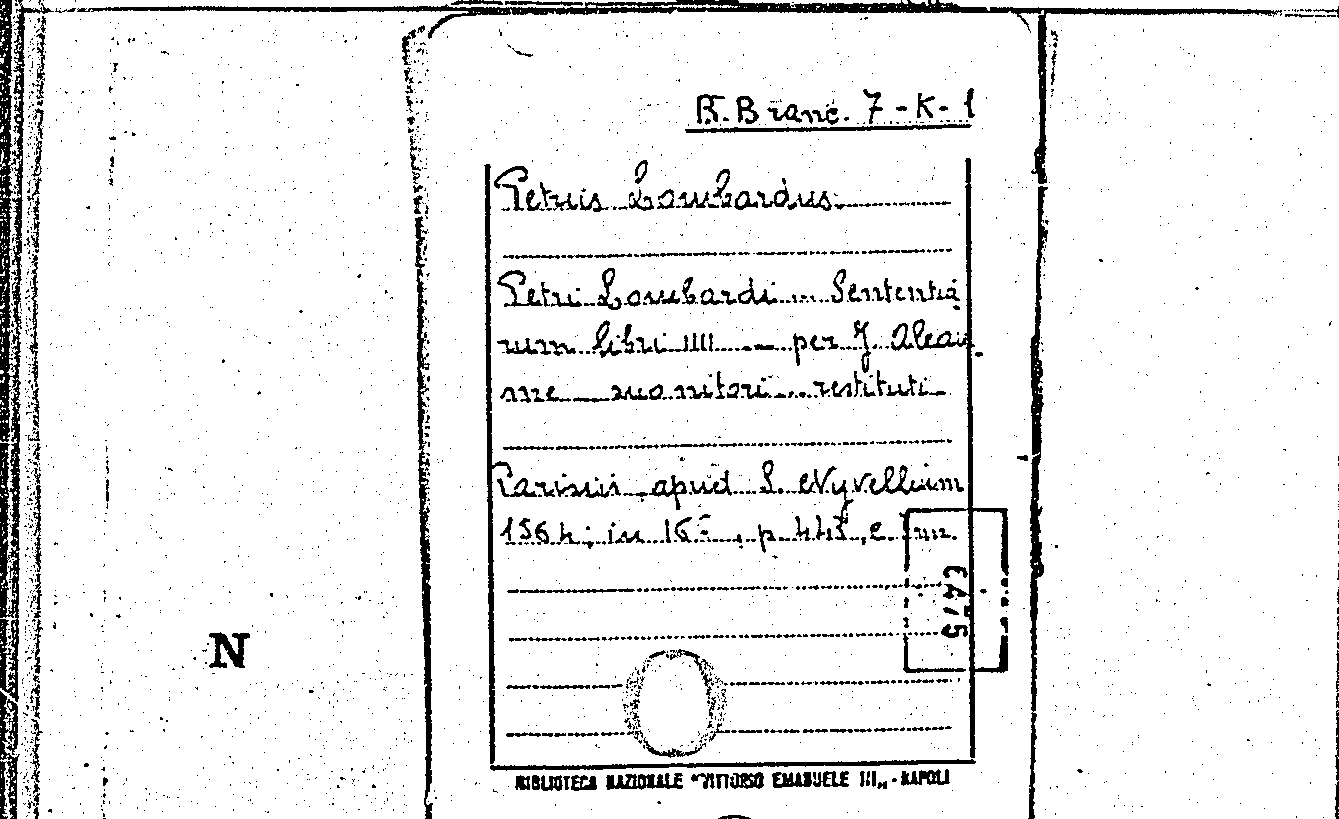 B. Branc. 7-K-1
Petrus Lombardus.
Petri Lombardi ... Sententia
rum libri IIII ... per J. Aleau
me ... nitori ... restituti
Parisiis, apud S. Nyvellium
1564; in 16°, p. 445, e
CA75
N
BIBLIOTECA NAZIONALE "VITTORIO EMANUELE III" - NAPOLI